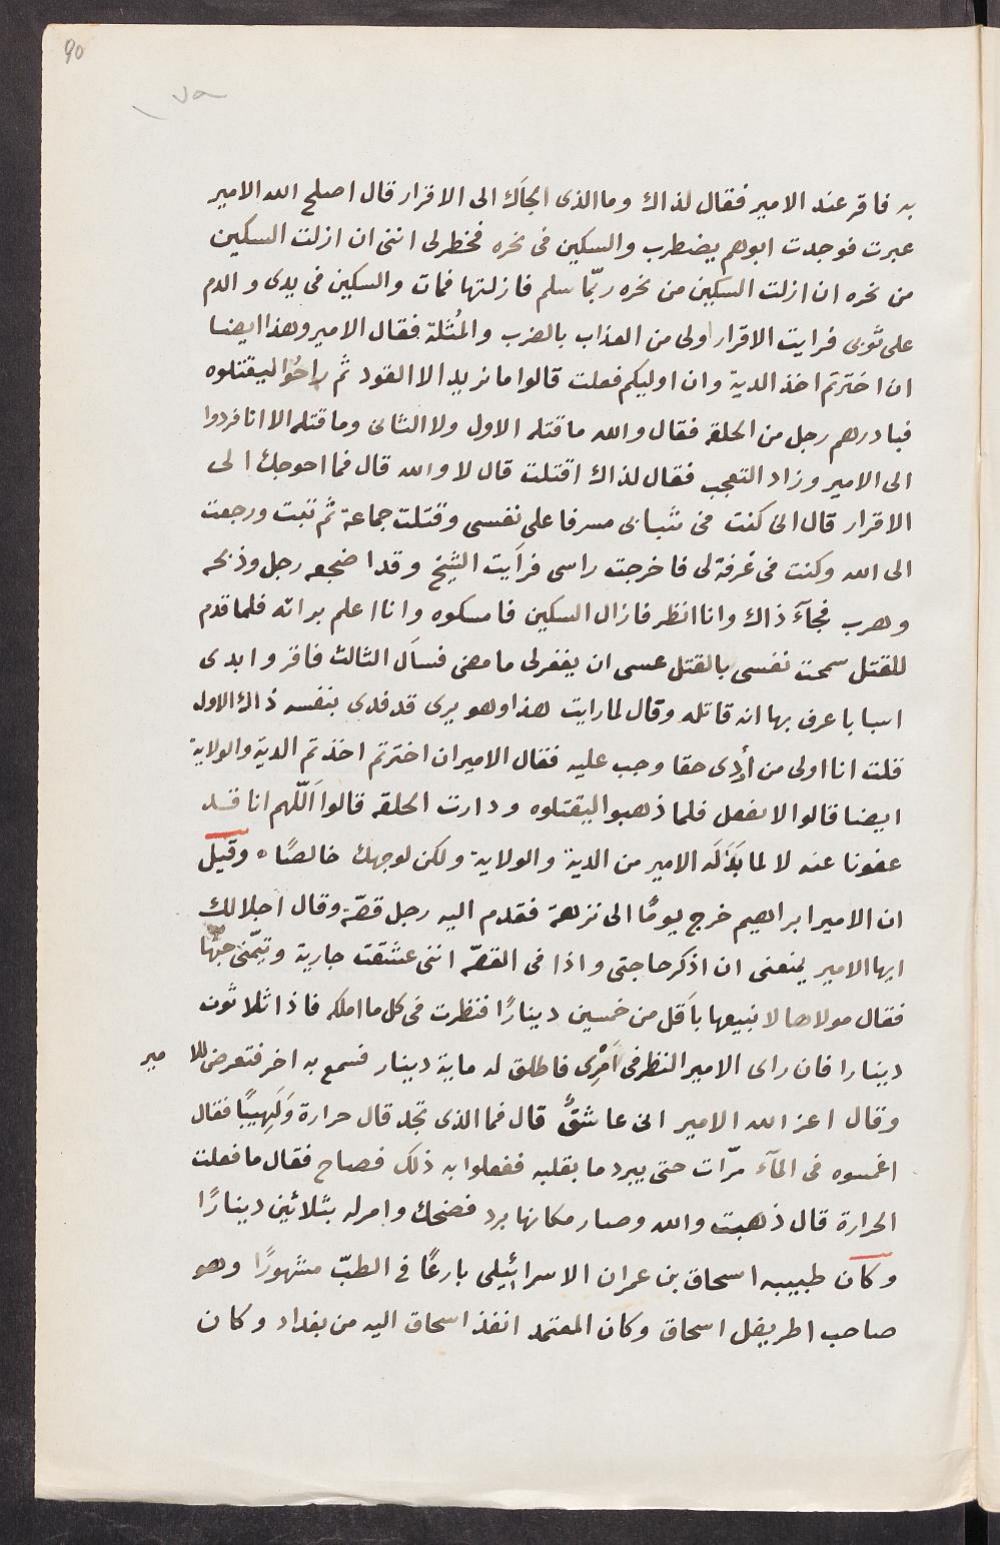 90
به فاقر عند الامير فقال لذاك وما الذى الجأَك الى الاقرار قال اصلح الله الامير
عبرت فوجدت ابوهم يضطرب والسكين فى نحره فخطر لى اننى ان ازلت السكين
من نحره ان ازلت السكين من نحره ربّما سلم فازلتها فمات والسكين فى يدى والدم
على ثوبى فرايت الاقرار اولى من العذاب بالضرب والمُثلة فقال الامير وهذا ايضا
ان اخترتم اخذ الدية وان اوليكم فعلت قالوا ما نريد الا القود ثم راحُوا ليقتلوه
فبادرهم رجل من الحلقه فقال والله ما قتله الاول ولا الثانى وما قتله الا انا فردوا
الى الامير وزاد التعجب فقال لذاك اقتلت قال لا والله قال فما احوجك الى
الاقرار قال انى كنت فى شبابى مسرفا على نفسى وقتلت جماعة ثم تبت ورجعت
الى الله وكنت فى غرفة لى فاخرجت راسى فرأَيت الشيخ وقد اضجعه رجل وذبحه
وهرب فجآءَ ذاك وانا انظر فازال السكين فامسكوه وانا اعلم براته فلما قدم
للقتل سمحت نفسى بالقتل عسى ان يغفر لى ما مضى فسأَل الثالث فاقر وابدى
اسبابا عرف بها انه قاتله وقال لما رايت هذا وهو يرى قد فدى بنفسه ذاك الاول
قلت انا اولى من أَدى حقا وجب عليه فقال الامير ان اخترتم اخذتم الدية والولاية
ايضا قالوا لا نفعل فلما ذهبوا ليقتلوه ودارت الحلقه قالوا اَللّهم انا قد
عفونا عنه لا لما بَذَلَه الامير من الدية والولاية ولكن لوجهك خالصًا ه وقيل
ان الامير ابراهيم خرج يومًا الى نزهة فقدم اليه رجل قصّة وقال اجلالك
ايها الامير يمنعنى ان اذكر حاجتى واذا فى القصّه اننى عشقت جارية وتيّمنى حبّها
فقال مولاها لا نبيعها باَقل من خمسين دينارًا فنظرت فى كل ما املكه فاذا ثلاثون
دينارا فان راى الامير النظر فى اَمْرِى فاطلق له ماية دينار فسمع به اخر فتعرض للامير
وقال اعز الله الامير انى عاشقٌ قال فما الذى تجد قال حرارة وَلَهِيبًا فقال
اغمسوه فى المآء مرّات حتى يبرد ما بقلبه ففعلوا به ذلك فصاح فقال ما فعلت
الحرارة قال ذهبت والله وصار مكانها برد فضحك وامر له بثلاثين دينارًا
وكان طبيبه اسحاق بن عمران الاسرائيلى بارعًا فى الطبّ مشهورًا وهو
صاحب اطريفل اسحاق وكان المعتمد انفذ اسحاق اليه من بغداد وكان